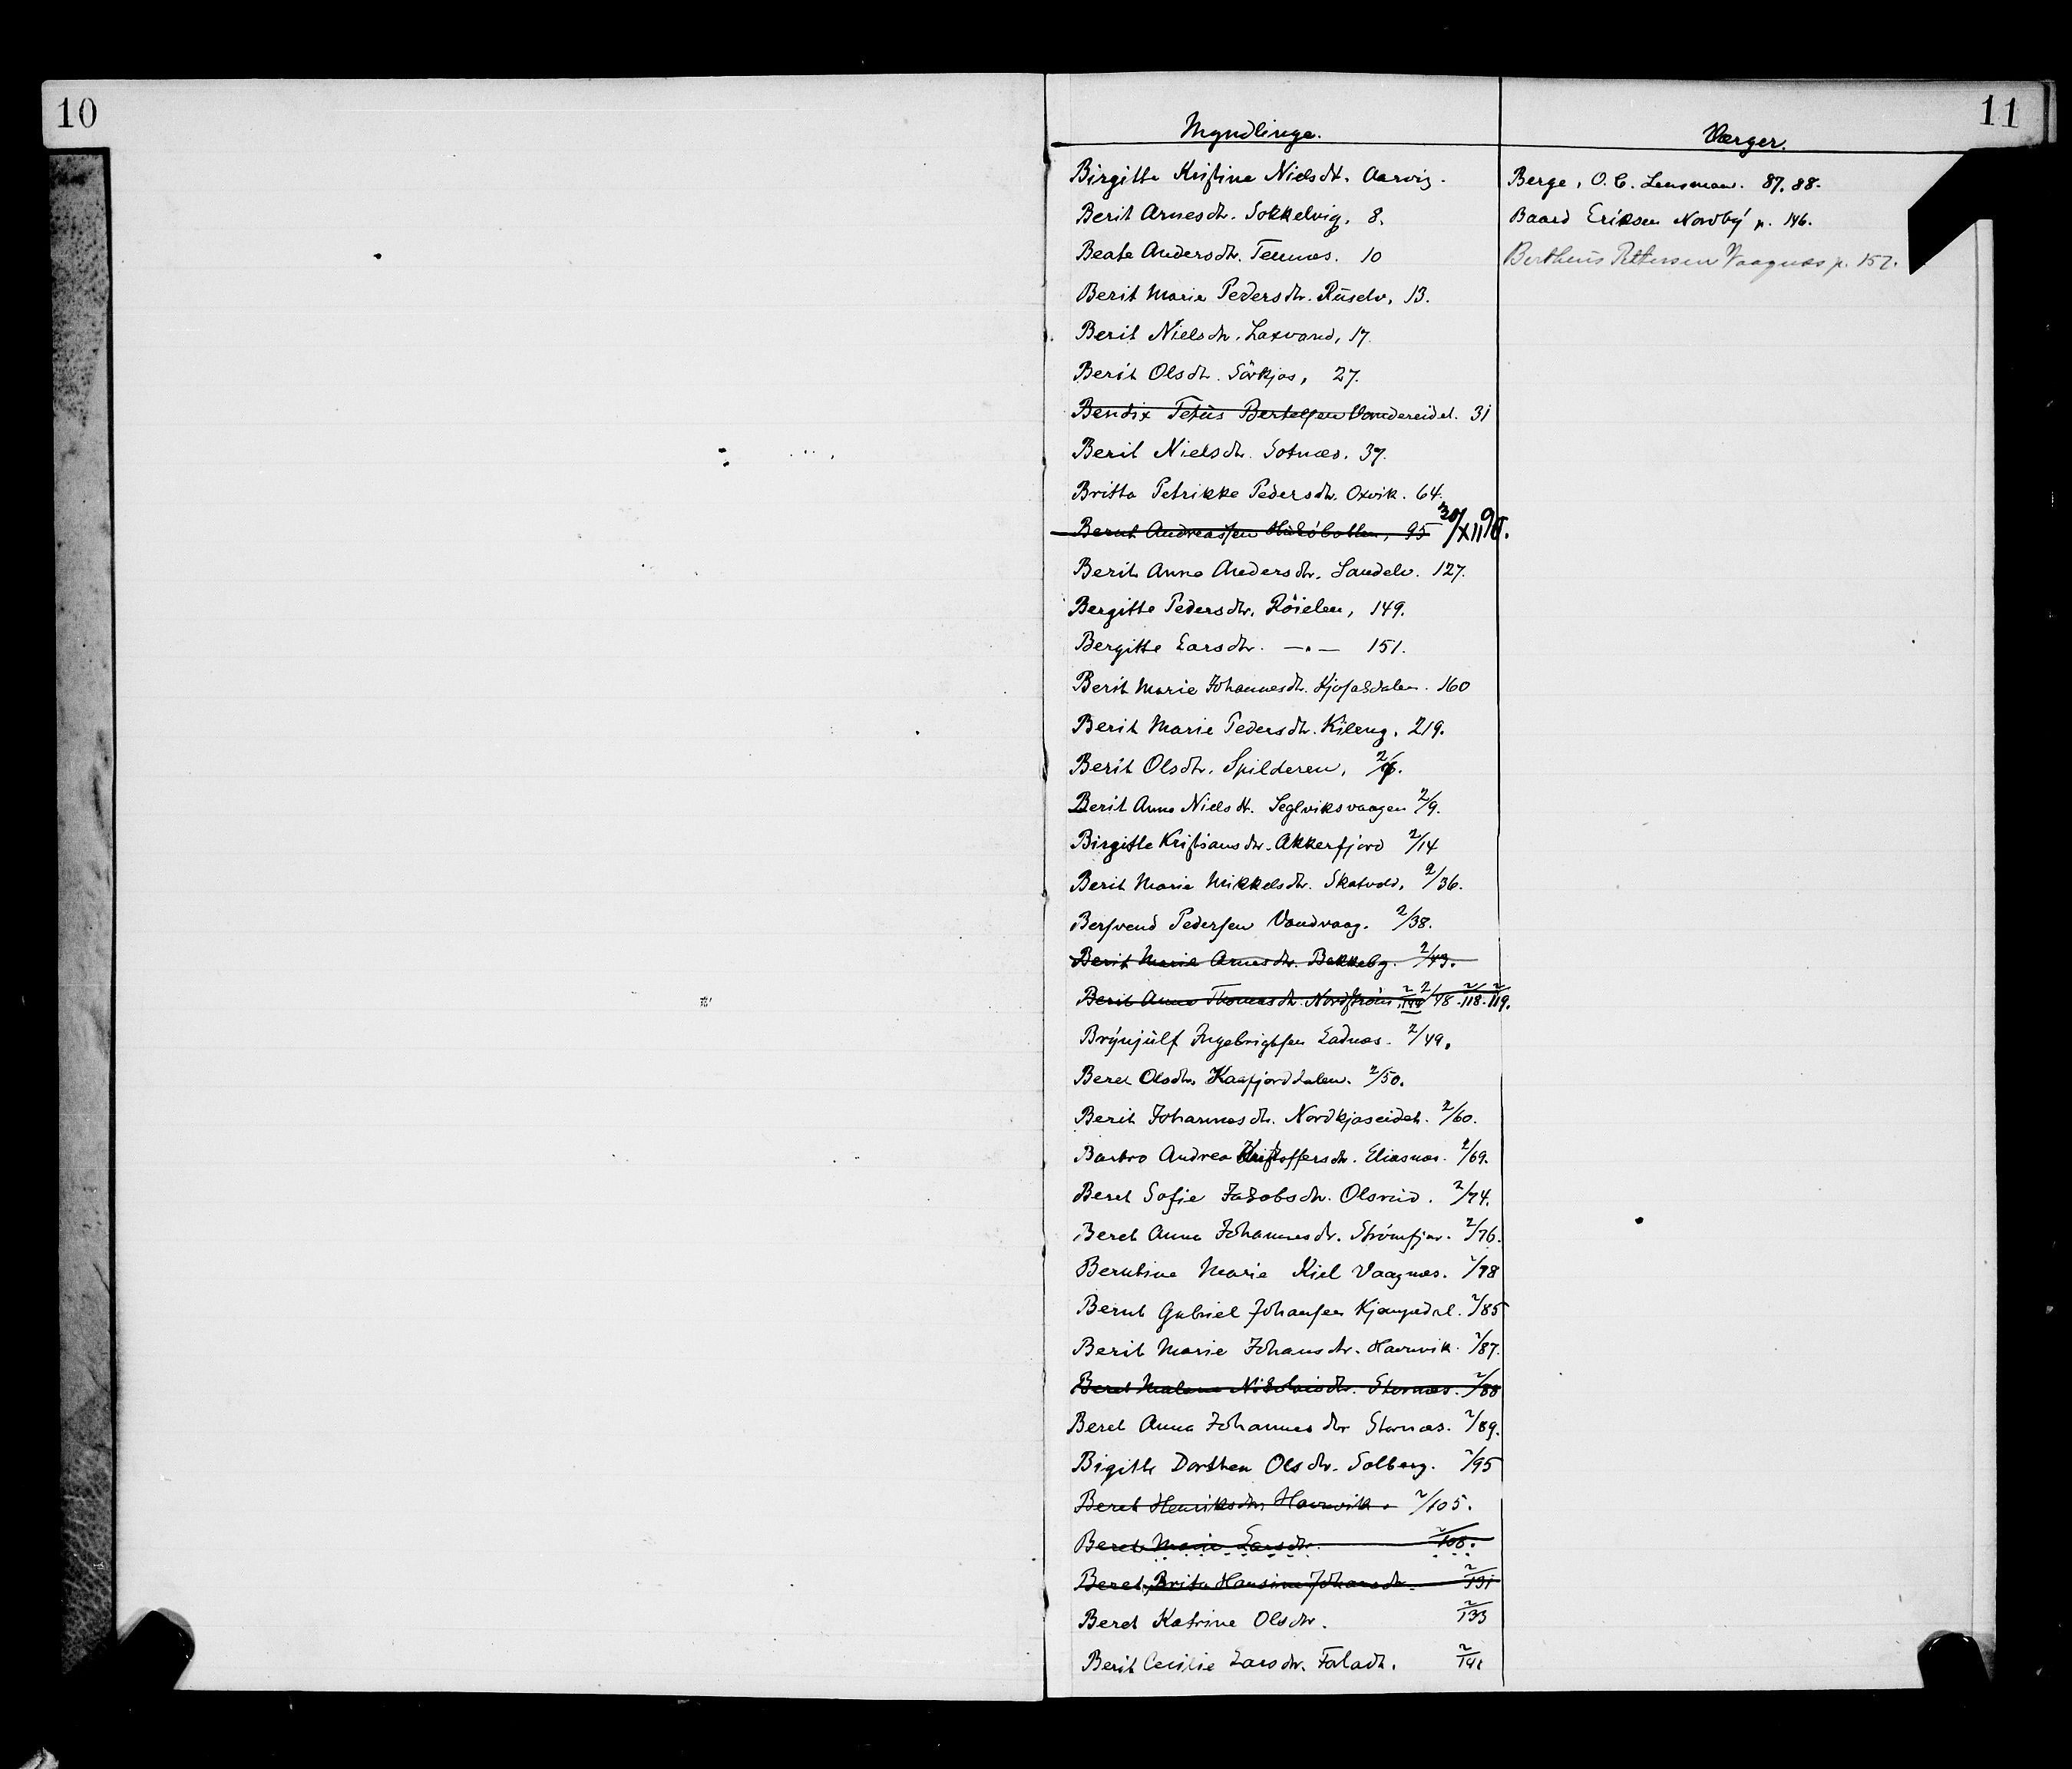 10
11
Myndlinge.
Værger.
Birgitte Kristine Nielsdt. Aarvig.
Berit Arnesdtr. Sokkelvig, 8.
Beate Andersdtr. Tennes. 10
Berit Marie Pedersdtr. Rüselv, 13.
Berit Nielsdtr. Laxvand, 17.
Berit Olsdtr. Sörkjos, 27.
Bendix Tetüs Bertelsen Vandereidet. 31
Berit Nielsdtr. Sotnæs. 37.
Britta Petrikke Pedersdtr. Oxvik. 64.
Bernt Andreassen 95 30/XII
Berit Anna Andersdtr. Sandelv. 127.
Bergitte Pedersdtr. Röielen, 149.
Bergitte Larsdtr. —„— 151.
Berit Marie Johannesdtr. Kjosasdalen. 160
Berit Marie Pedersdtr. Kileng. 219.
Berit Olsdtr. Spilderen,
Berit Anna Nielsdt. Seglviksvaagen 2/9.
Birgitte Kristiansdtr. Akkerfjord 2/14
Berit Marie Mikkelsdtr. Skatvold, 2/36.
Bersvend Pedersen Vandvaag. 2/38.
Berit Marie Arnesdtr. Bakkeby. 2/43.
Berit Anna Thomasdtr. Nordström 2/144 2/48. 2/118. 2/119.
Brynjülf Ingebrigtsen Ladnæs. 2/49.
Beret Olsdtr. Kaafjorddalen. 2/50.
Berit Johannesdtr. Nordkjoseidet. 2/60.
Barbro Andrea Kristoffersdtr. Eliasnæs. 2/69.
Beret Sofie Jakobsdtr. Olsrud. 2/74.
Beret Anna Johannesdtr. Strömfjor. 2/76.
Berntine Marie Kiel Vaagnæs. 2/78
Bernt Gabriel Johansen Kjempedal. 2/85
Berit Marie Johansdtr. Havnvik. 2/87.
Beret Malene Nikolaisdtr. Stornæs. 2/88
Beret Anna Johannesdtr Stornæs. 2/89.
Bigitte Dorthea Olsdtr. Solberg. 2/95
Beret Henriksdtr Havnvik. 2/105.
Beret Marie Larsdtr. 2/108.
Beret, Brita Hansine Johansdtr. 2/131
Beret Katrine Olsdtr. 2/133
Berit Cecilie Larsdtr. 2/141
Berge, O. C. Lensmand. 87. 88.
Baard Eriksen Nordby p. 146.
Bertheüs Pettersen Vaagnæs p. 157.